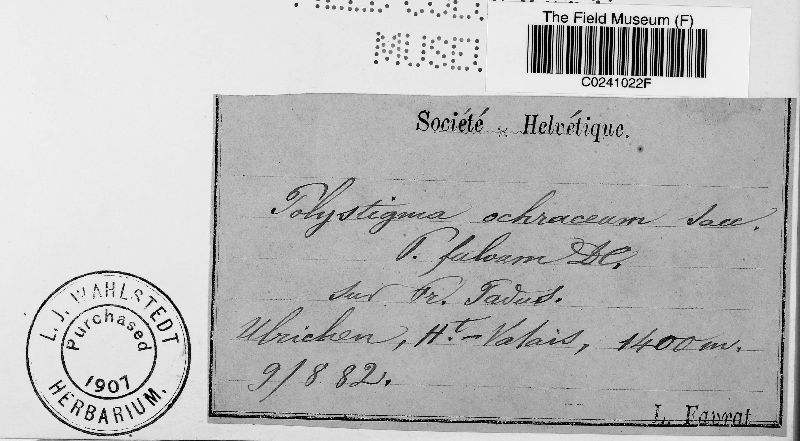 FIELD COLUMBIAN
MUSEUM
The Field Museum (F)
C0241022F
Société Helvétique.
Polystigma ochraceum Sacc.
P. fulvum DC.
sur Pr. Padus.
Ulrichen, Ht-Valais, 1400 m.
9/8 82.
L. Favrat
L. J. WAHLSTEDT
Purchased
1907
HERBARIUM.